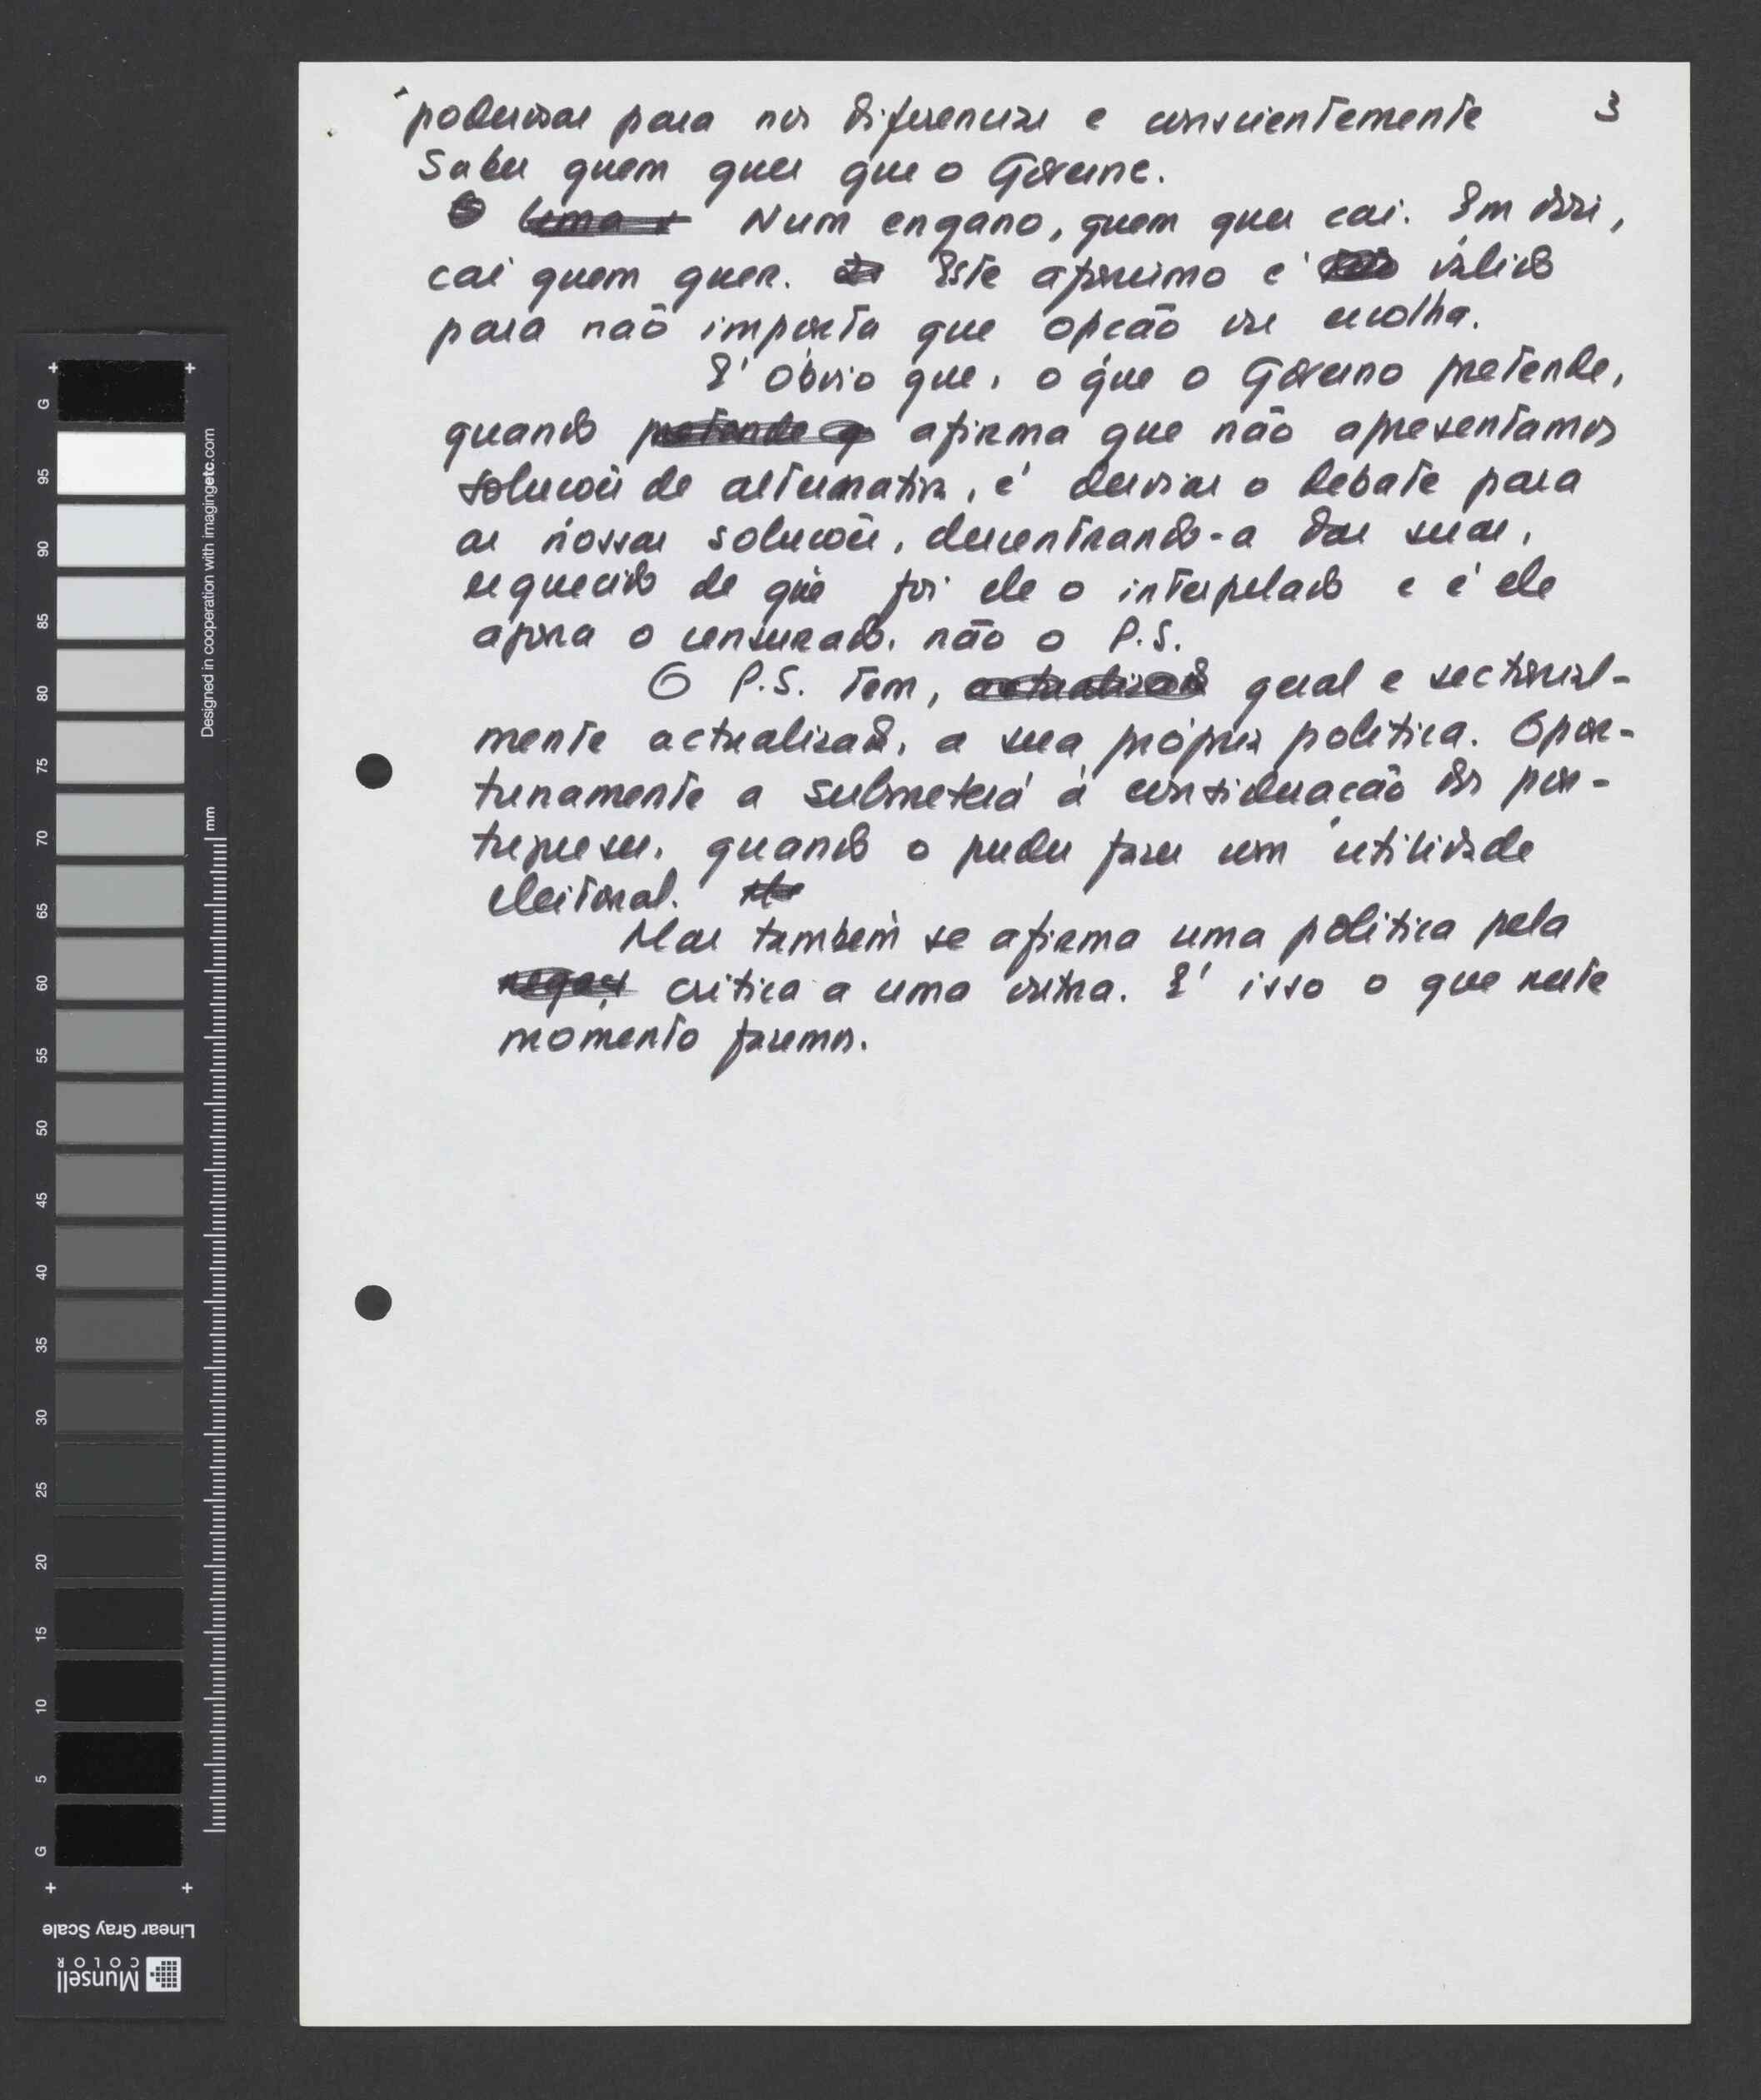 3
poderosas para nos diferenciar e conscientemente
saber quem quer que o Governe.
Num engano, quem quer cai. Em dois,
cai quem quer. Este aforismo é válido
para não importa que opção se escolha.
É óbvio que, o que o Governo pretende,
quando pretende q afirma que não apresentamos
soluções de alternativa, é desviar o debate para
as nossas soluções, descentrando-a das suas,
esquecido de que foi ele o interpelado e é ele
agora o censurado, não o P.S.
O P.S. tem, actualizada geral e sectorial-
mente actualizada, a sua própria política. Opor-
tunamente a submeterá à consideração dos por-
tugueses, quando o puder fazer com utilidade
eleitoral.
Mas também se afirma uma política pela
crítica a uma outra. É isso o que neste
momento faremos.
G 95 90 85 80 75 70 65 60 55 50 45 40 35 30 25 20 15 10 5 G
mm
Designed in cooperation with imagingetc.com
Linear Gray Scale
Munsell
COLOR